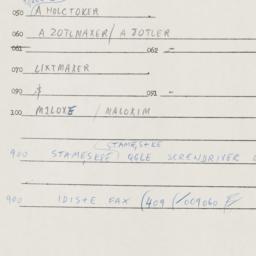 050 A HOLCTOKER
060 A ZOTLMAXER / A ZOTLER
061 062 –
070 LIXTMAXER
090 $ 091 –
100 MILOXE / MALOXIM
STAMESKE
900 STAMESKEE OGLE SCRENDRIVER
900 IDISHE FAX (409 (/009060